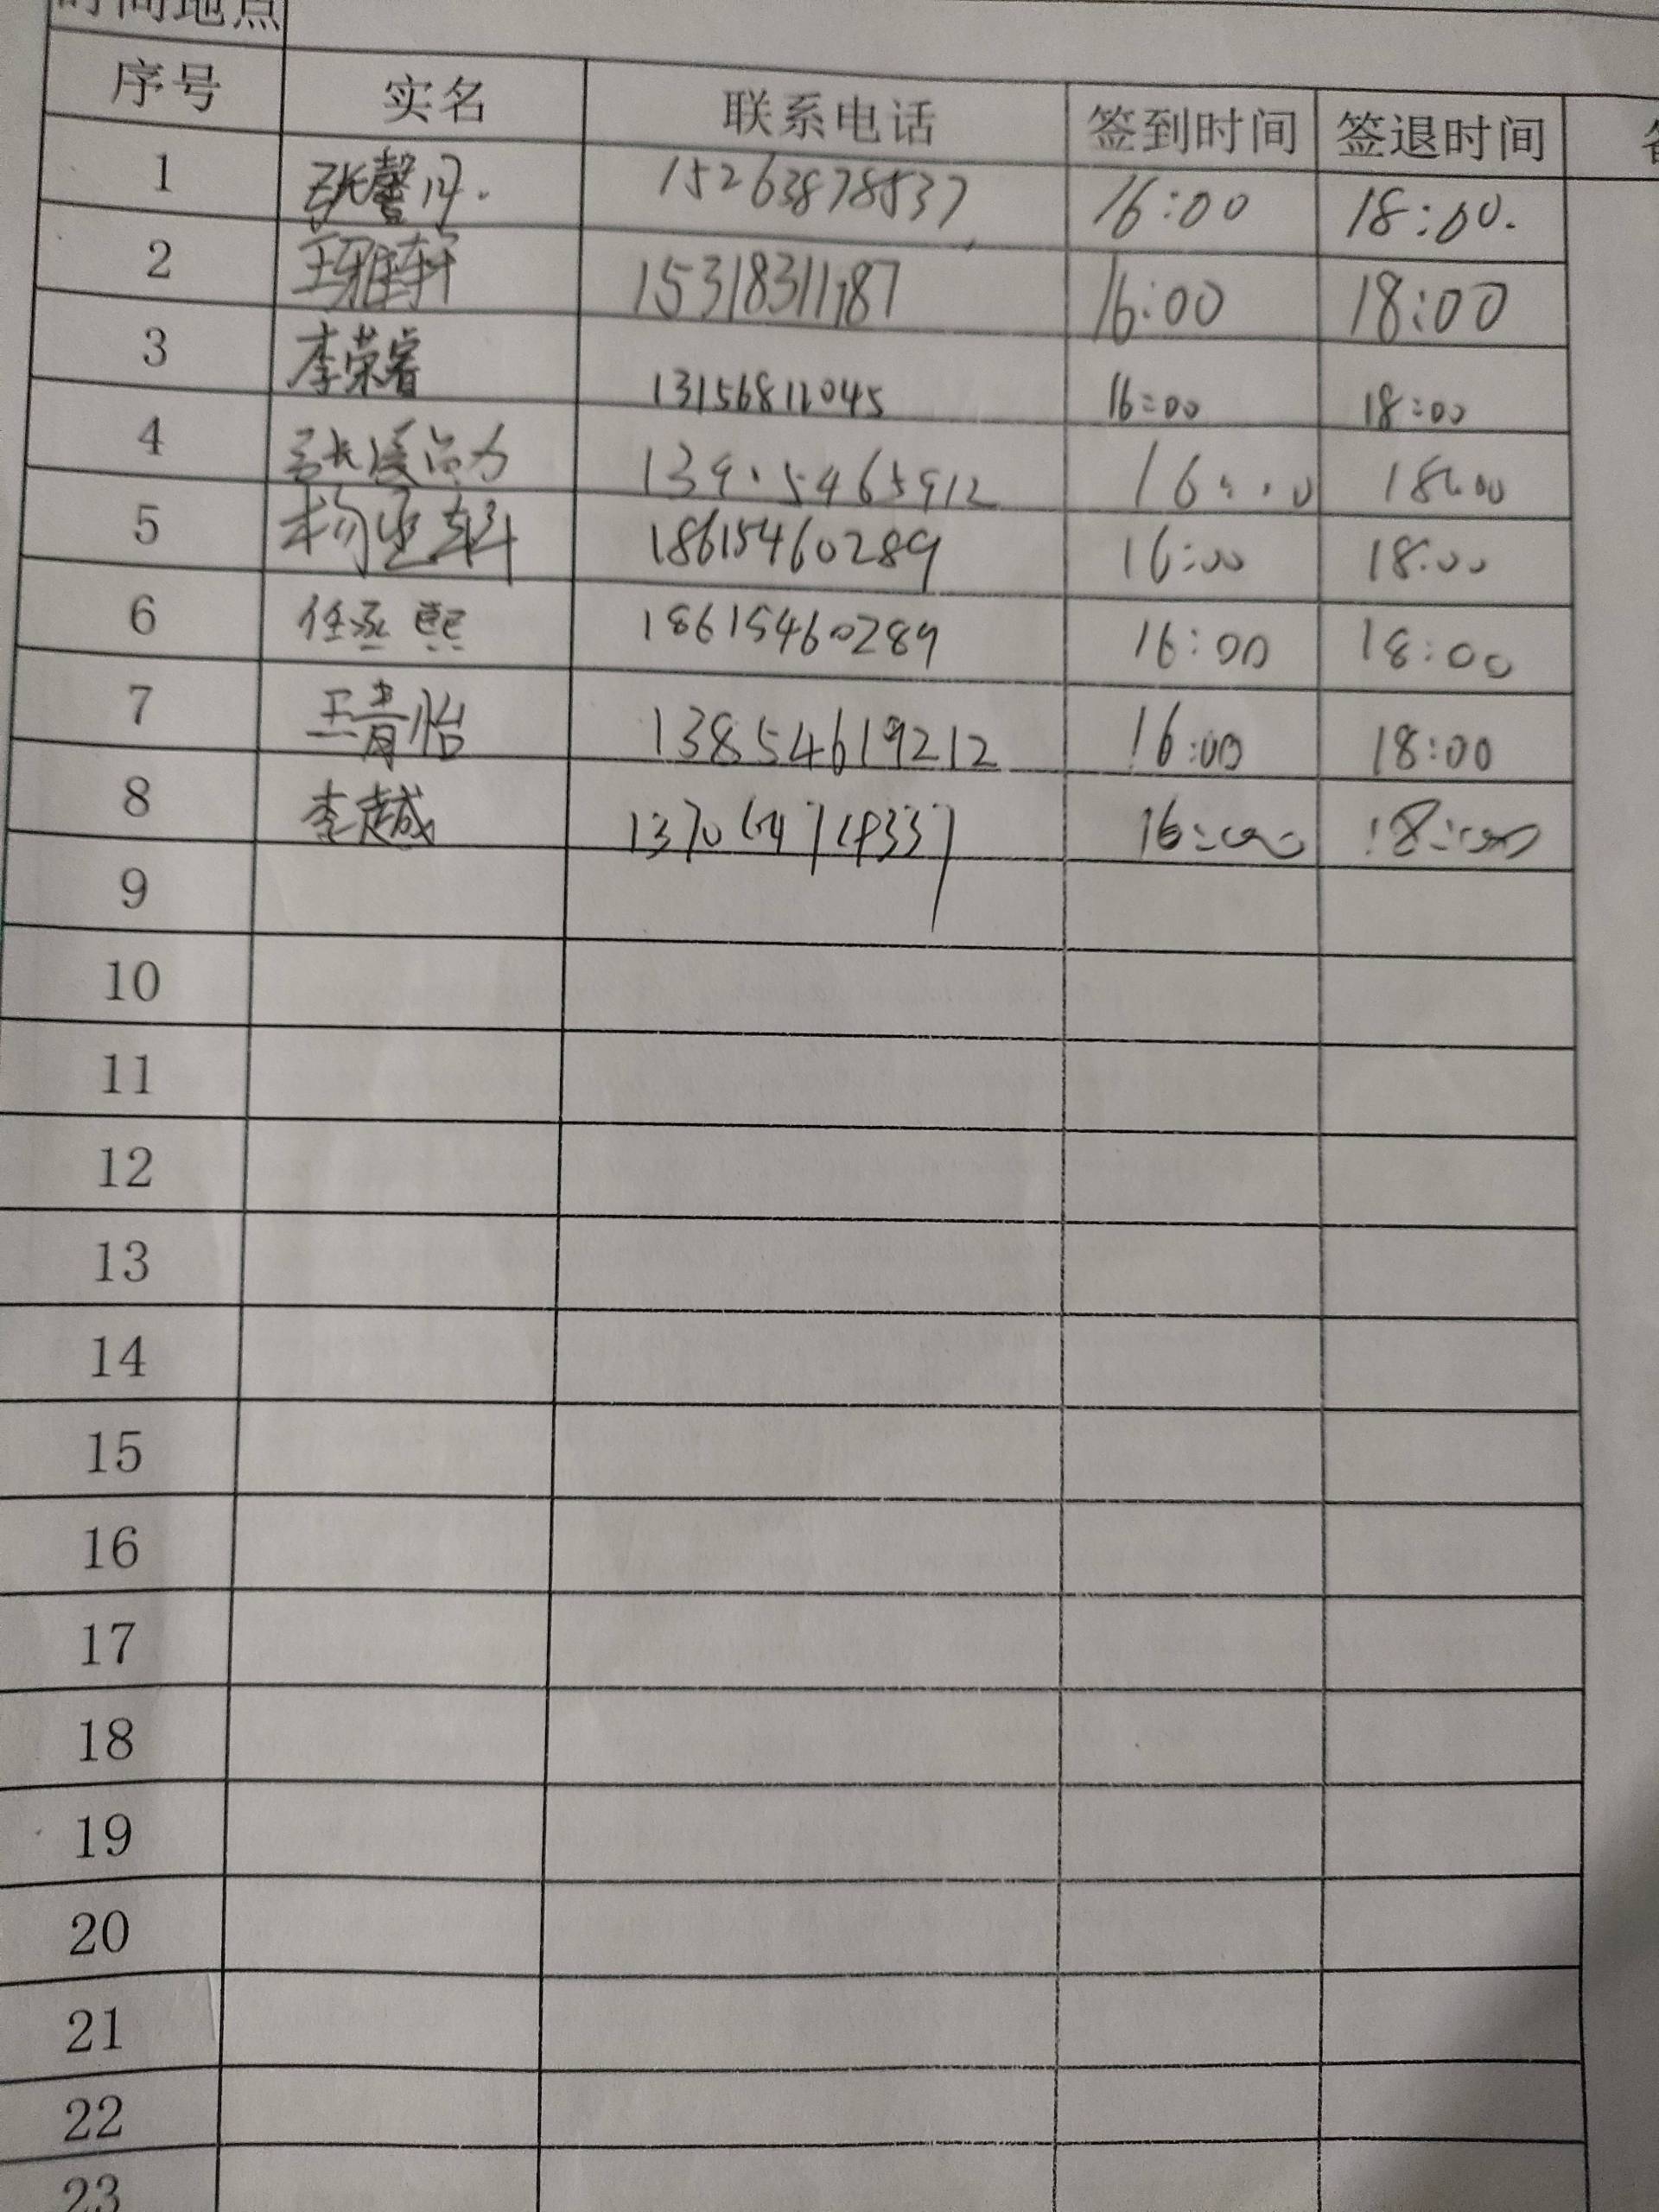 时间地点
序号 实名 联系电话 签到时间 签退时间
1 张馨月. 15263878537 16:00 18:00.
2 王雅轩 15318311187 16:00 18:00
3 李荣睿 13156812045 16:00 18:00
4 张 13905465912 16:00 18:00
5 杨 18615460289 16:00 18:00
6 任 熙 18615460289 16:00 18:00
7 王青怡 13854619212 16:00 18:00
8 李越 16:00 18:00
9
10
11
12
13
14
15
16
17
18
19
20
21
22
23